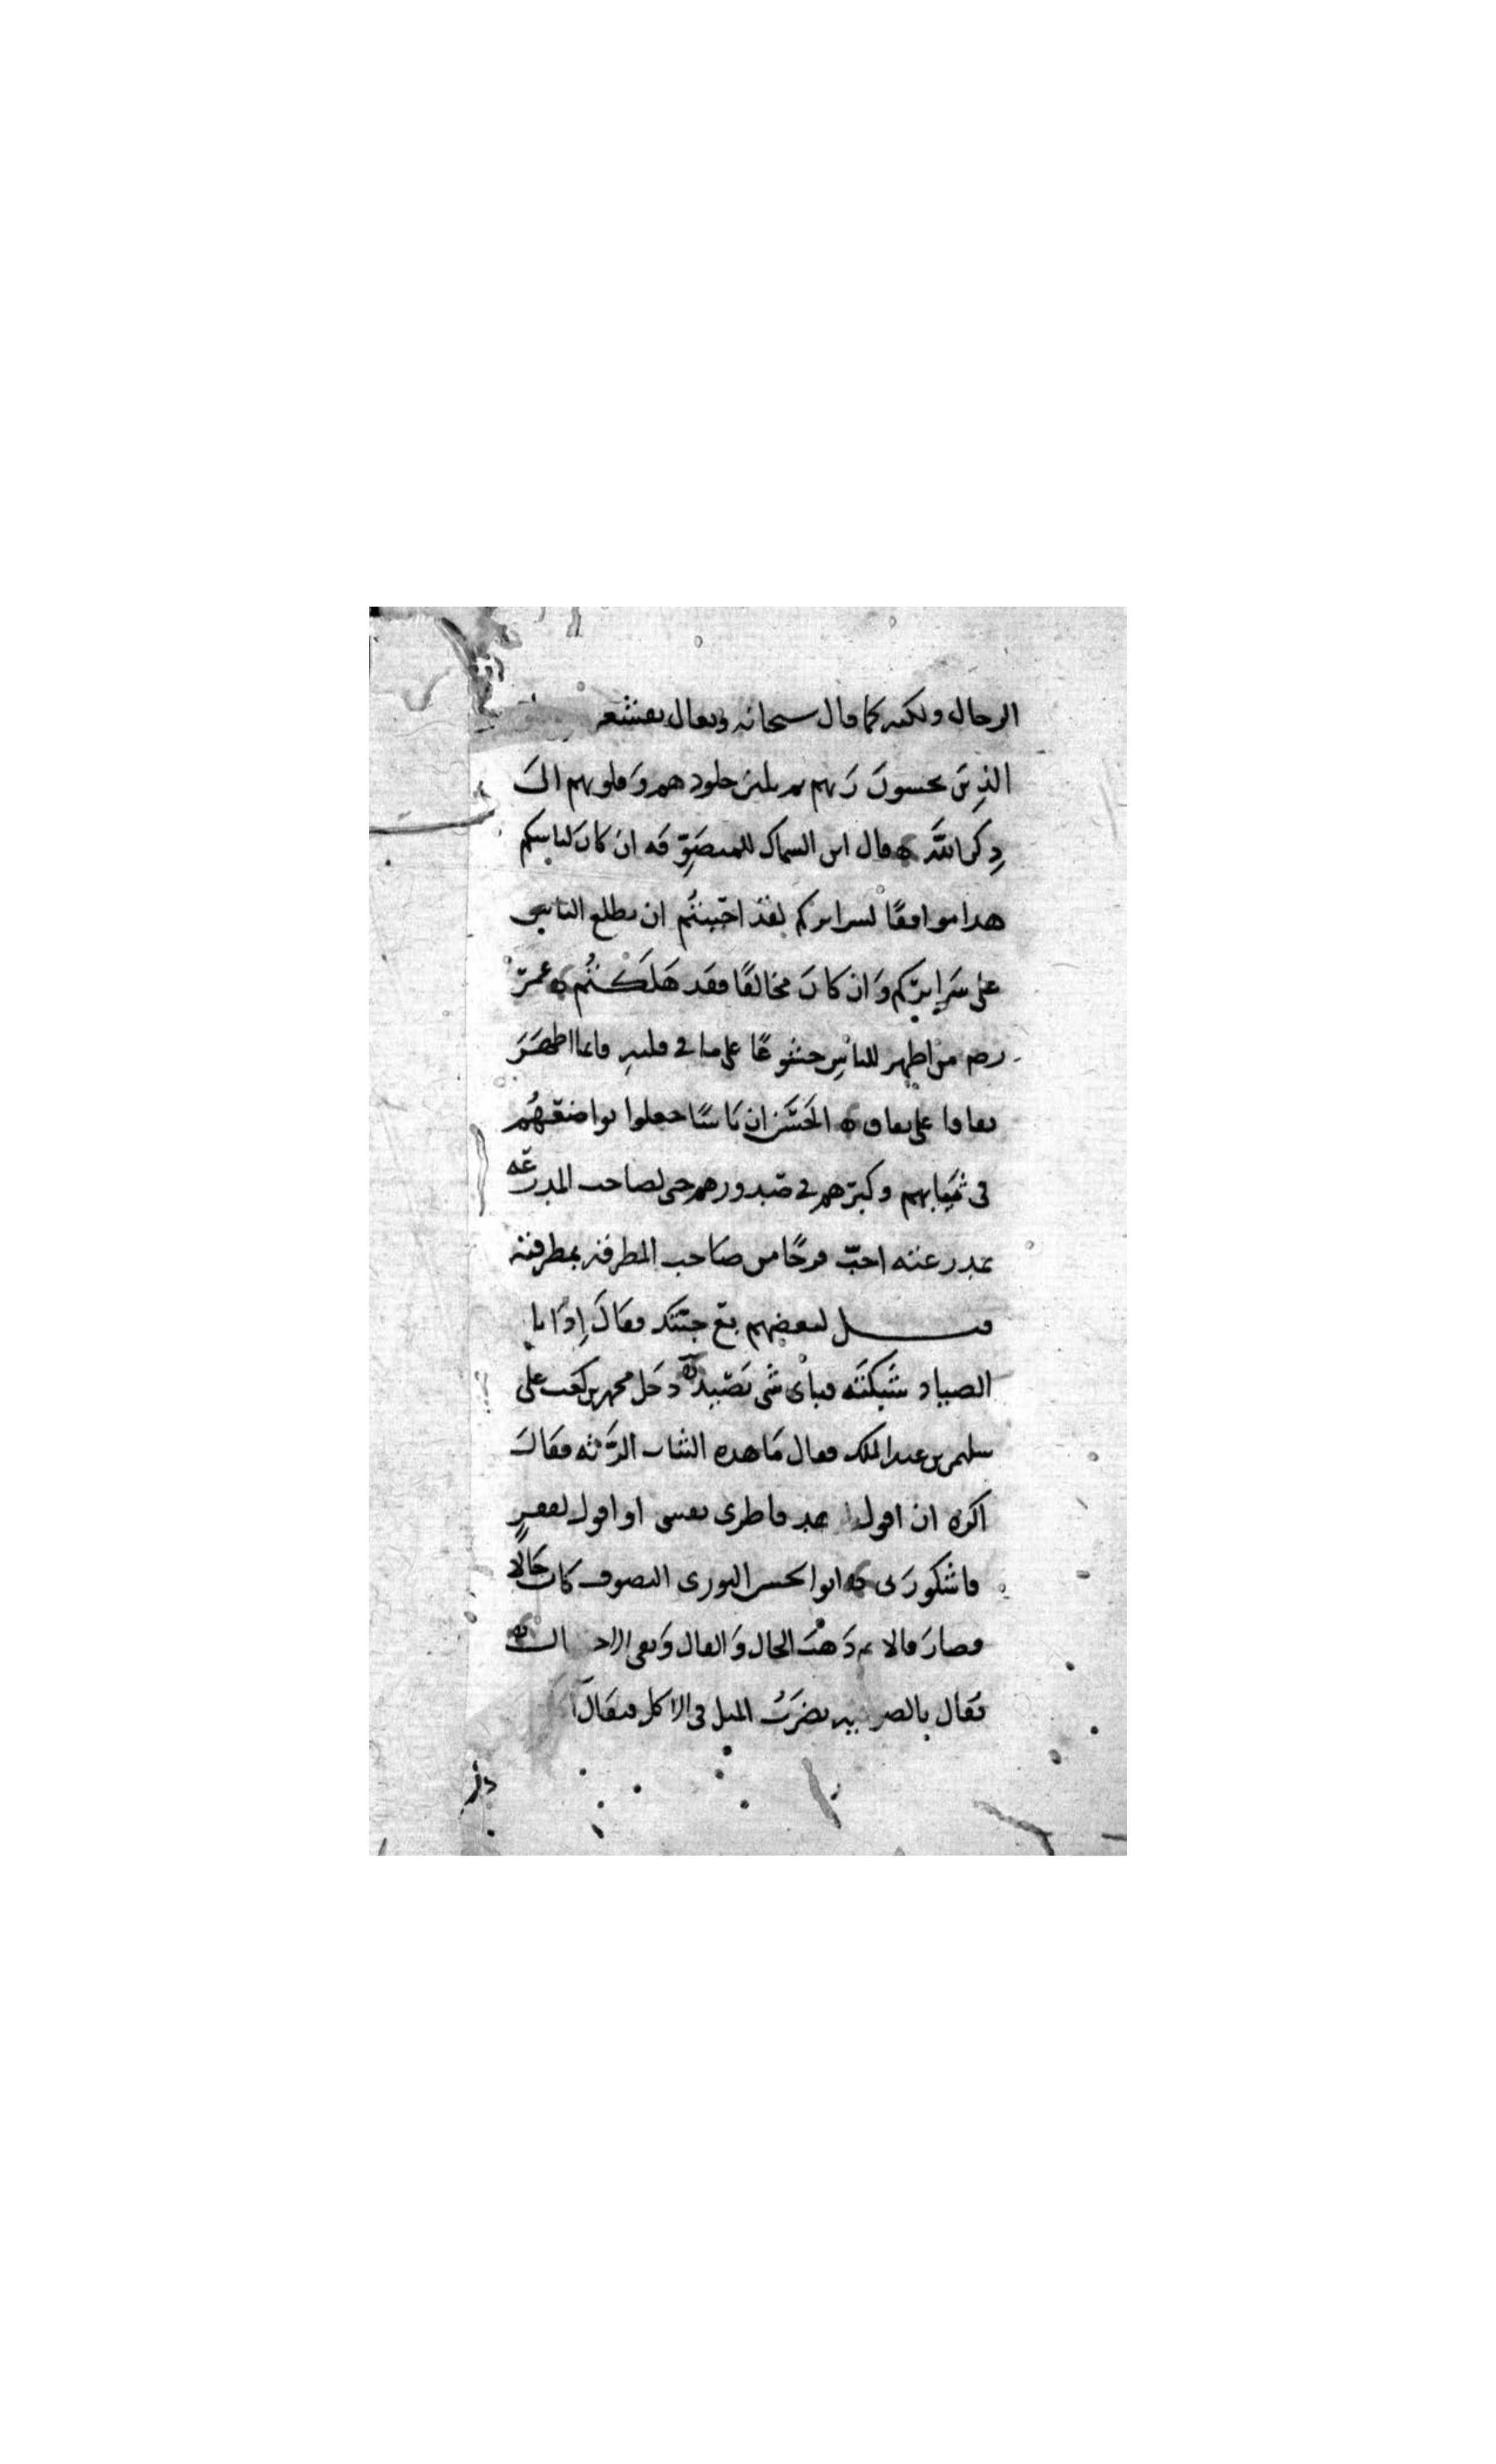 الرجال ولكنه كما قال سبحانه وتعالى تقشعر
الذين يخشون ربهم ثم تلين جلودهم وقلوبهم الى
ذكر الله ه قال ابن السماك للمتصوفه ان كان لباسكم
هذا موافقا لسرائركم لقد احببتم ان يطلع الناس
على سرائركم وان كان مخالفا فقد هلكتم ه عمر
رضه من اظهر للناس خشوعا على ما في قلبه فانما اظهر
نفاقا على نفاق ه الحسن ان ناسا جعلوا تواضعهم
في ثيابهم وكبرهم في صدورهم حتى لصاحب المدرعه
بمدرعته احب فرحا من صاحب المطرفه بمطرفته
قيل لبعضهم بع جبتك فقال اذا باع
الصياد شبكته فباى شي تصيد ه دخل محمد بن كعب على
سليمن بن عبد الملك فقال ما هذه الثياب الرثه فقال
اكره ان اقول فاطرى نفسى او اقول لفقر
فاشكو ربى ه ابو الحسن النورى التصوف كان حالا
فصار قالا ثم ذهب الحال والقال وبقى
يضرب المثل في الاكل فيقال